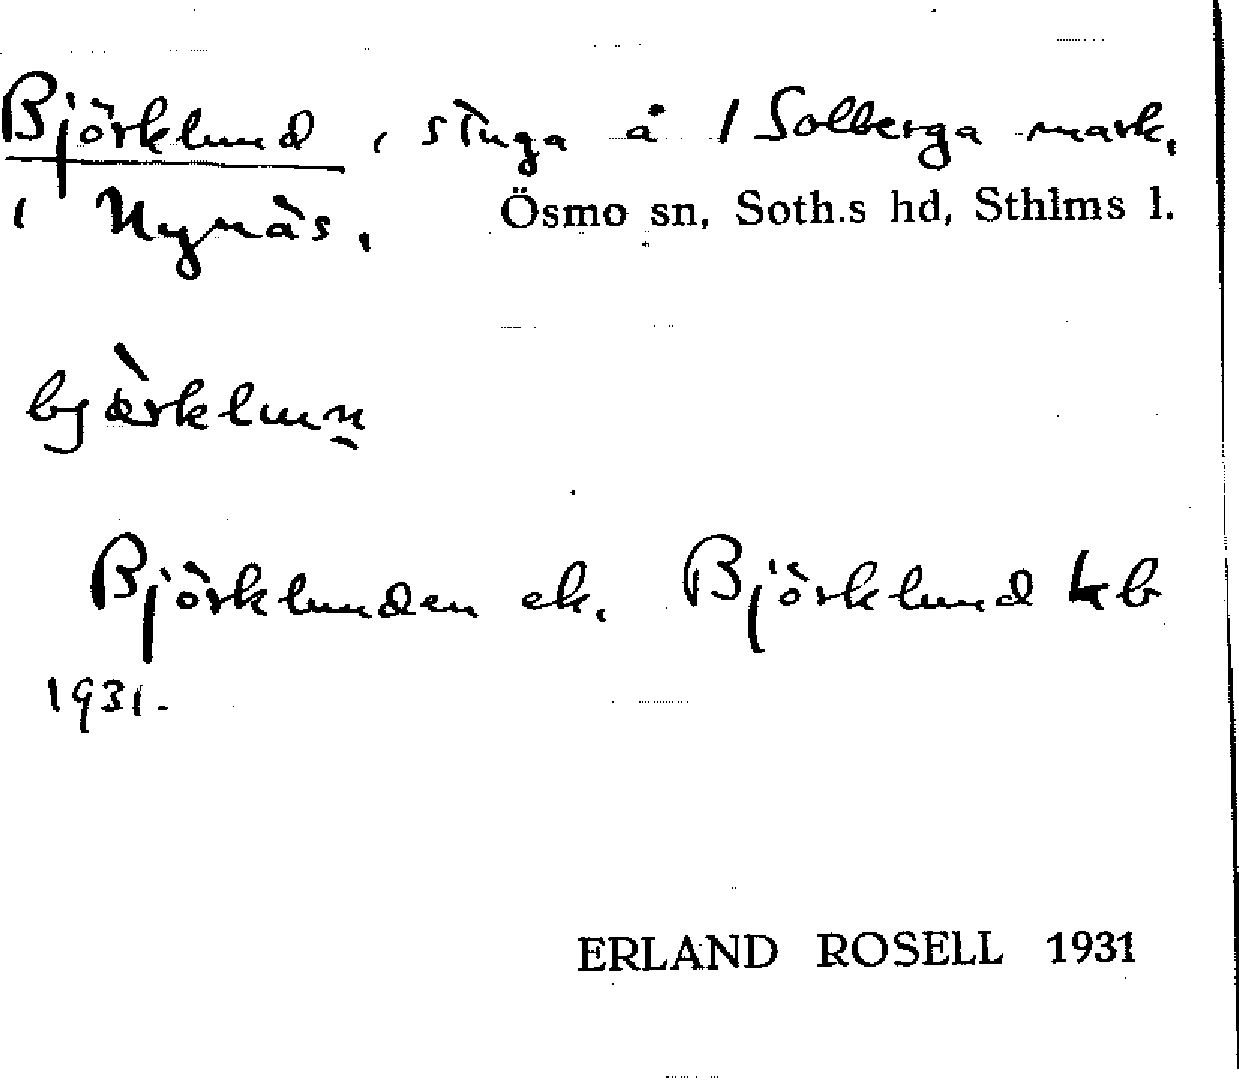 Björklund, stuga å 1 Solberga mark,
i Nynäs. Ösmo sn, Soth.s hd, Sthlms l.
bjærklun̬
Björklunden ek. Björklund
1931.
ERLAND ROSELL 1931